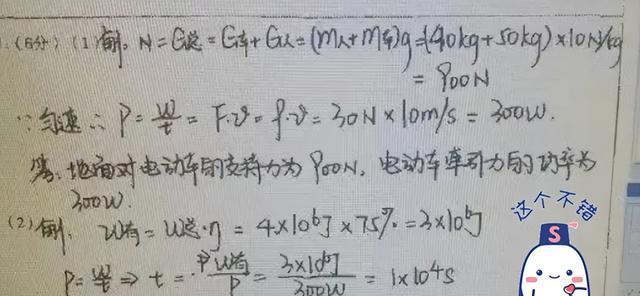 (6分) (1)解. N=G总=G车+G人=(m人+m车)g=(40kg+50kg)×10N/kg
=900N
∵匀速∴P=W/t=F·v=f·v=30N×10m/s=300W.
答:地面对电动车的支持力为900N,电动车牵引力的功率为
300W.
(2)解. W有=W总·η=4×10⁶J×75%=3×10⁶J
P=W/t⇒t=W有/P=3×10⁶J/300W=1×10⁴s
这个不错
S